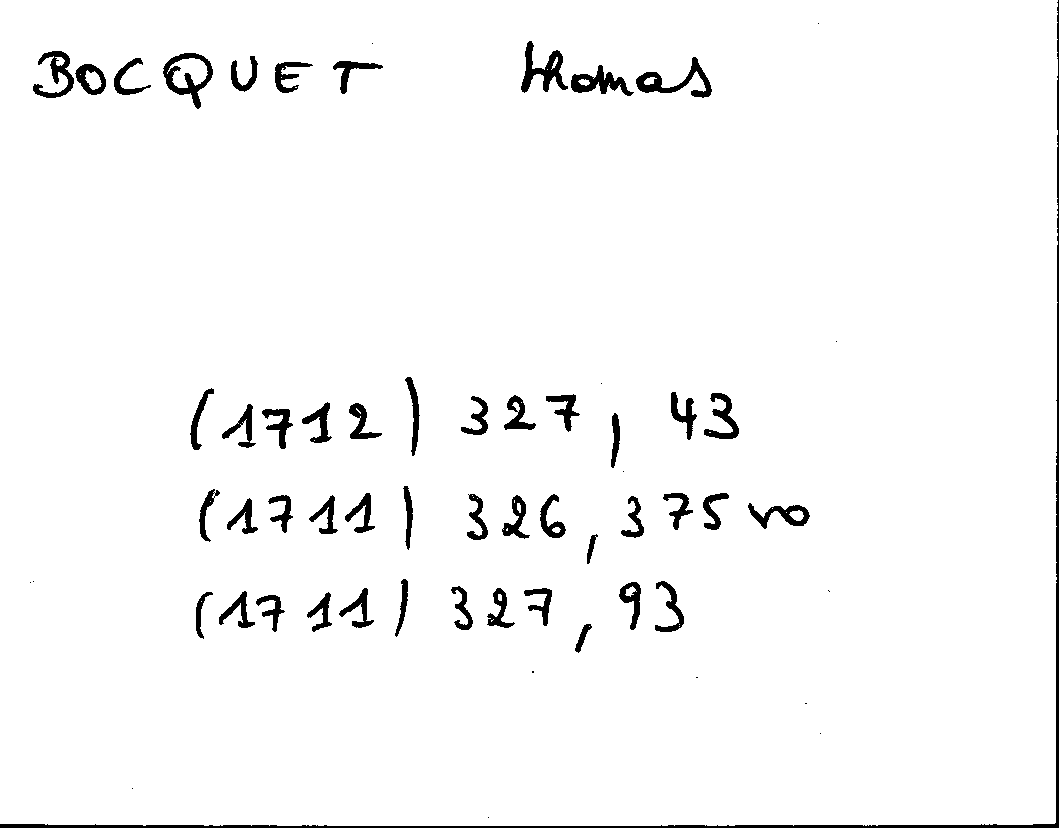 BOCQUET thomas
(1712) 327, 43
(1711) 326, 375 vo
(1711) 327, 93